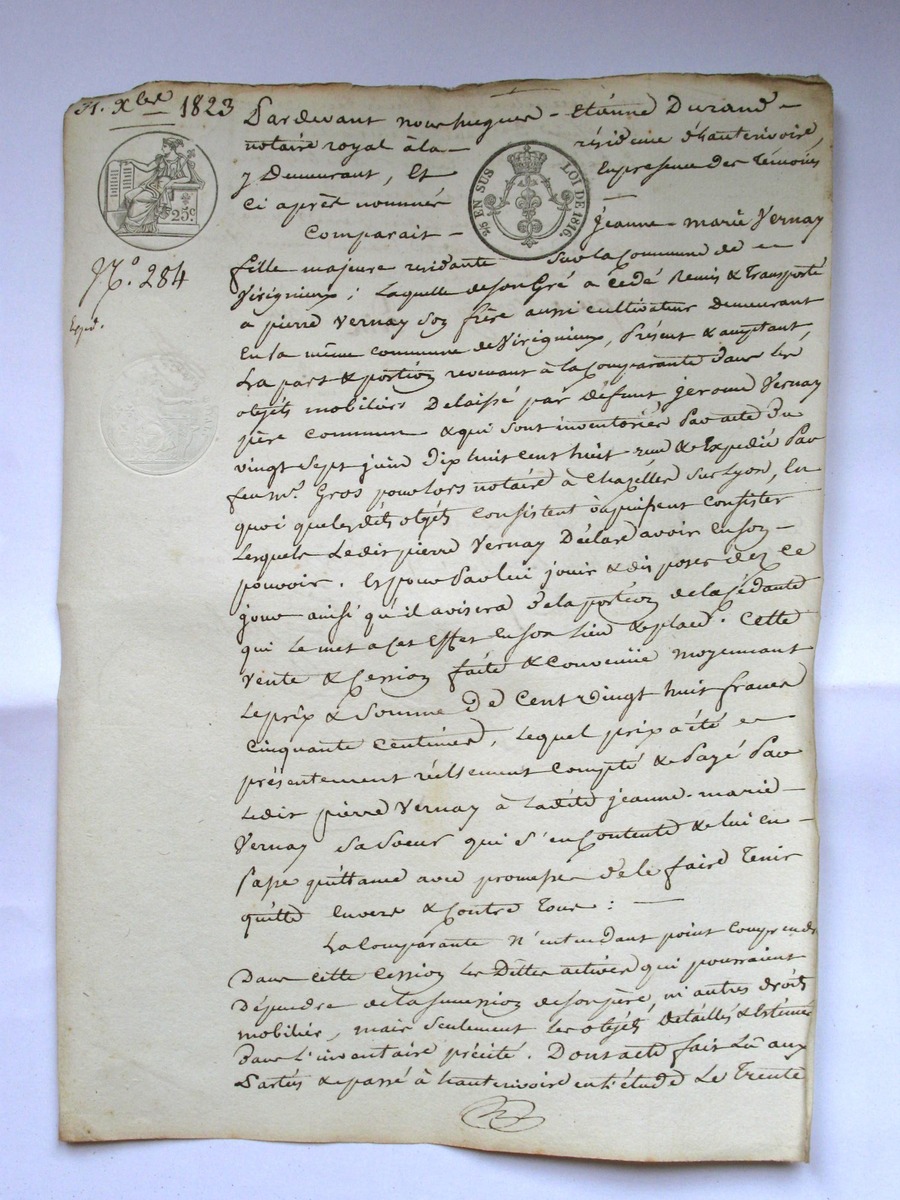 31. Xbre 1823
25c.
EN SUS LOI DE 1816.
No. 284
Exped.
Pardevant nous hugues - Etienne Durand -
notaire royal à la - résidence d'hauterivoire,
y Demeurant, Et En presence des Témoins
Ci après nommés -
Comparait - jeanne - marie Vernay
fille majeure residante sur la Commune de
Virignieux ; Laquelle de son Gré a Cédé Remis & Transporté
a pierre Vernay Son frère aussi cultivateur Demeurant
En la même commune de Virignieux, Présent & acceptant,
La part & portion revenant à la Comparante dans les
objets mobiliers Délaissé par Défunt jerome Vernay
père commun & qui sont inventoriés Par acte du
vingt sept juin Dix huit cent huit reçu & Expedié Par
feu Mr. Gros pour lors notaire à Chazelles sur Lyon, En
quoi que lesdits objets Consistent ou puissent Consister
Lesquels Ledit pierre Vernay Déclare avoir En son -
pouvoir. Et pour Par lui jouir & dis poser dez Ce
jour ainsi qu'il avisera de la portion de la Cédante
qui Le met a Cet Effet En son Lieu & place. Cette
Vente & Cession faite & Convenüe moyennant
Le prix & Somme De Cent vingt huit francs
Cinquante Centimes, Lequel prix a été
présentement réellement Compté & Payé Par
Ledit pierre Vernay à Ladite jeanne - marie -
Vernay Sa Soeur qui s'en Contente & lui en -
Passe quittance avec promesse de le faire Tenir
quitte Envers & Contre Tous : -
La Comparante N'entendant point Comprendre
Dans cette Cession Les Dettes actives qui pourraient
Dépendre de la succession de son père, ni autres droits
mobilier, mais seulement Les objets Détaillés & Estimés
Dans L'inventaire précité. Dont acte fait Lu aux
Parties & passé à hauterivoire en L'étude Le Trente